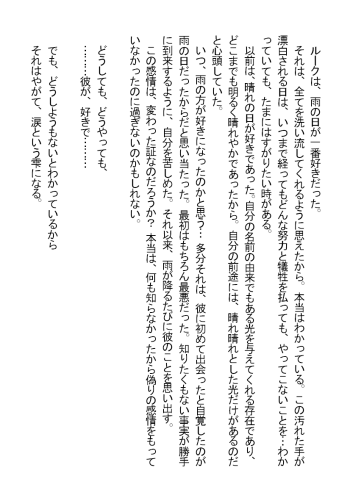 ルークは、雨の日が一番好きだった。
それは、全てを洗い流してくれるように思えたから。本当はわかっている。この汚れた手が
漂白される日は、いつまで経ってもどんな努力と犠牲を払っても、やってこないことを…わか
っていても、たまにはすがりたい時がある。
以前は、晴れの日が好きであった。自分の名前の由来でもある光を与えてくれる存在であり、
どこまでも明るく晴れやかであったから。自分の前途には、晴れ晴れとした光だけがあるのだ
と心頭していた。
いつ、雨の方が好きになったのかと思う…多分それは、彼に初めて出会ったと自覚したのが
雨の日だったからだと思い当たった。最初はもちろん最悪だった。知りたくもない事実が勝手
に到来するように、自分を苦しめた。それ以来、雨が降るたびに彼のことを思い出す。
この感情は、変わった証なのだろうか？本当は、何も知らなかったから偽りの感情をもって
いなかったのに過ぎないのかもしれない。
どうしても、どうやっても、
………彼が、好きで………
でも、どうしようもないとわかっているから
それはやがて、涙という雫になる。